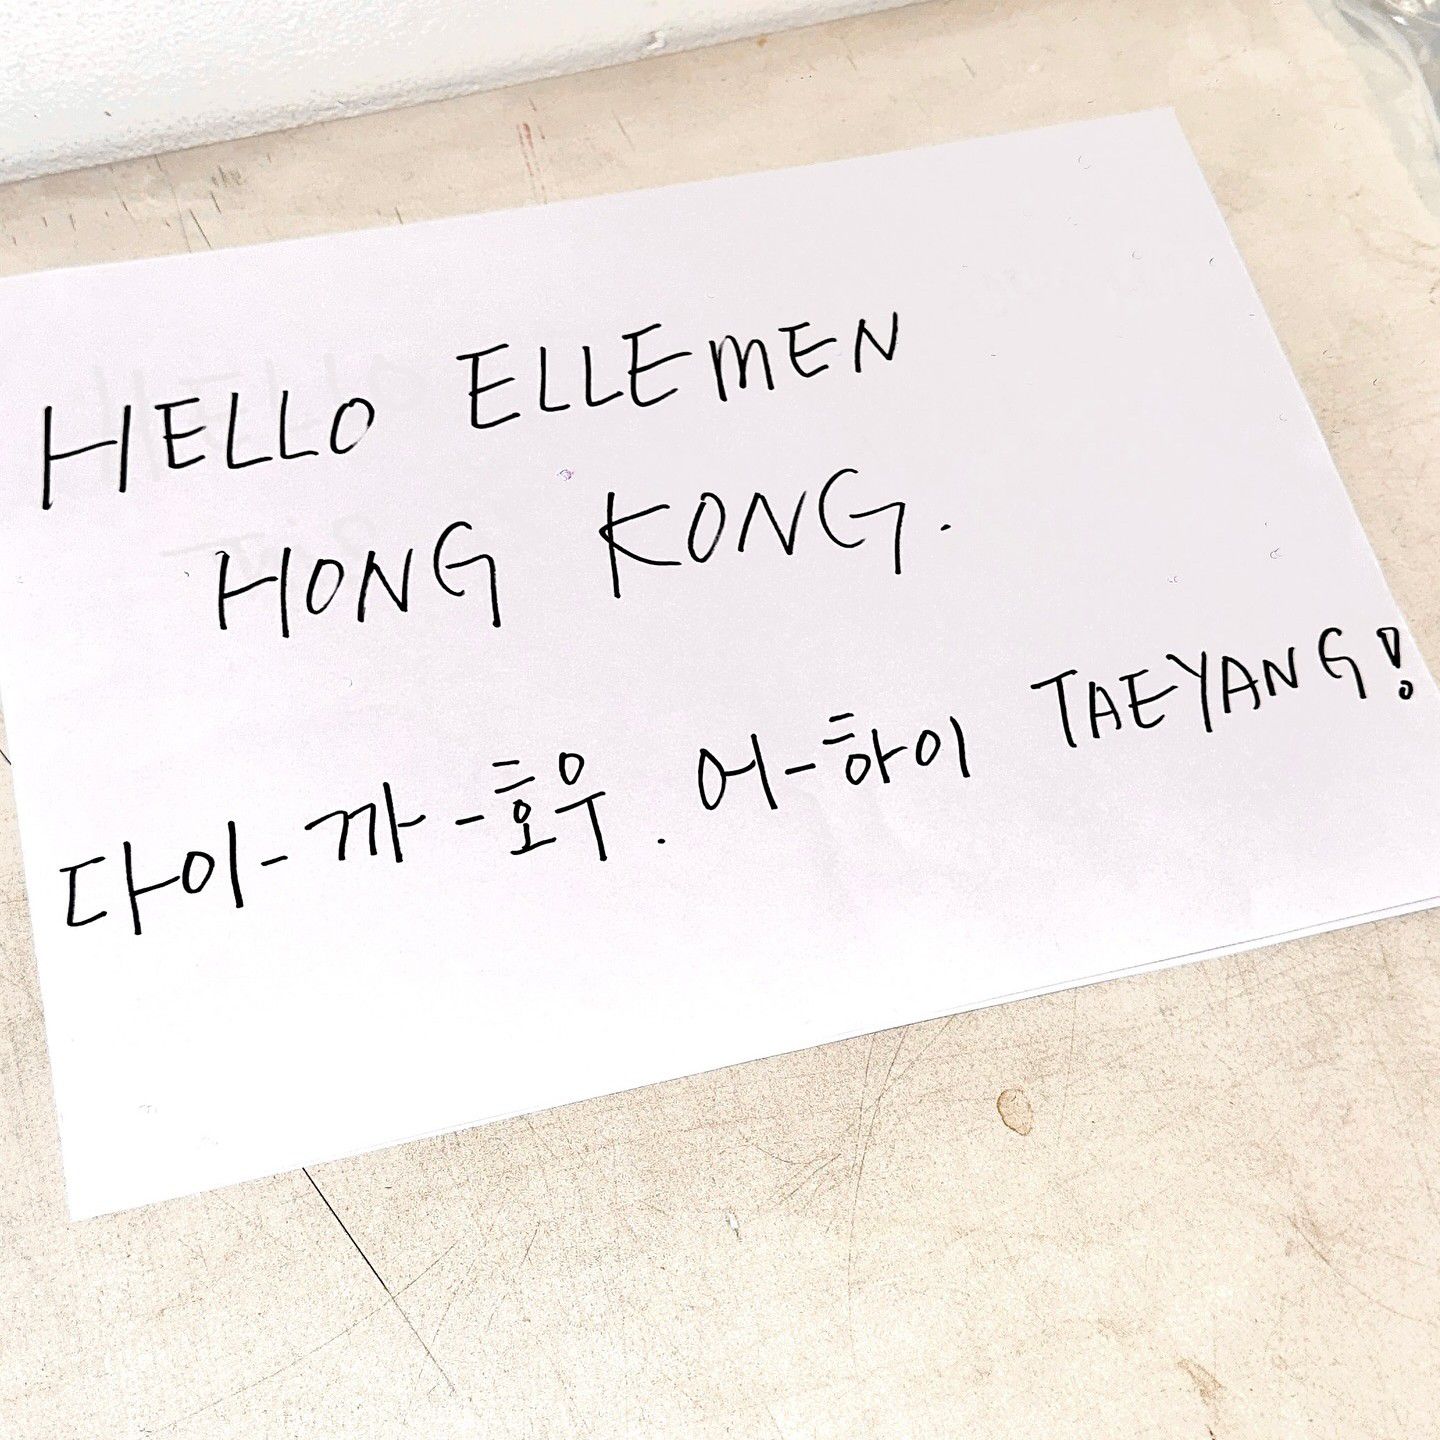 HELLO ELLEMEN
HONG KONG.
다이-까-호우. 어-하이 TAEYANG!